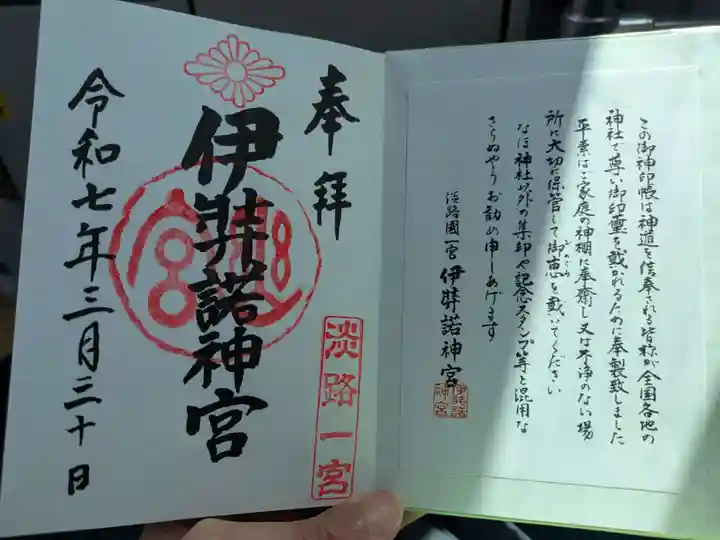 この御神印帳は神道を信奉される皆様が全国各地の
神社で尊い御印璽を戴かれるために奉製致しました
平素はご家庭の神棚に奉齋し又は不浄のない場
所に大切に保管して御恵を戴いてください
なほ神社以外の集印や記念スタンプ等と混用な
さらぬやうお勧め申しあげます
淡路國一宮 伊弉諾神宮
伊弉諾
神宮
奉拝
淡路一宮
伊弉諾神宮
令和七年三月三十日